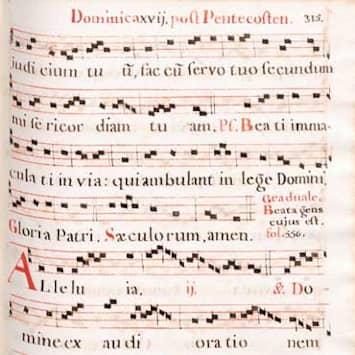 Dominica xvij. post Pentecosten. 315.
judi cium tu ũ, fac cũ servo tuo secundum
mi se ricor diam tu am. Ps. Bea ti imma-
cula ti in via: qui ambulant in lege Domini,
Graduale.
Beata gens
cujus est.
fol. 556.
Gloria Patri. Sæculorum, amen.
ALle lu ia, ij. &. Do-
mine ex au di oratio nem